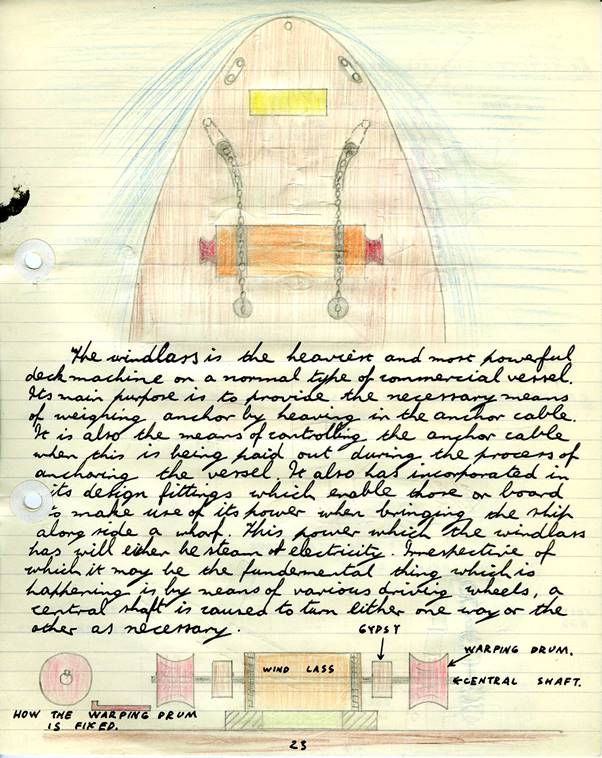 The windlass is the heaviest and most powerful
deck machine on a normal type of commercial vessel.
Its main purpose is to provide the necessary means
of weighing anchor by heaving in the anchor cable.
It is also the means of controlling the anchor cable
when this is being paid out during the process of
anchoring the vessel. It also has incorporated in
its design fittings which enable those on board
to make use of its power when bringing the ship
along side a wharf. This power which the windlass
has will either be steam or electricity. Irrespective of
which it may be the fundemental thing which is
happening is by means of various driving wheels, a
central shaft is caused to turn either one way or the
other as necessary.
GYPSY
WARPING DRUM.
WIND LASS
CENTRAL SHAFT.
HOW THE WARPING DRUM
IS FIXED.
23